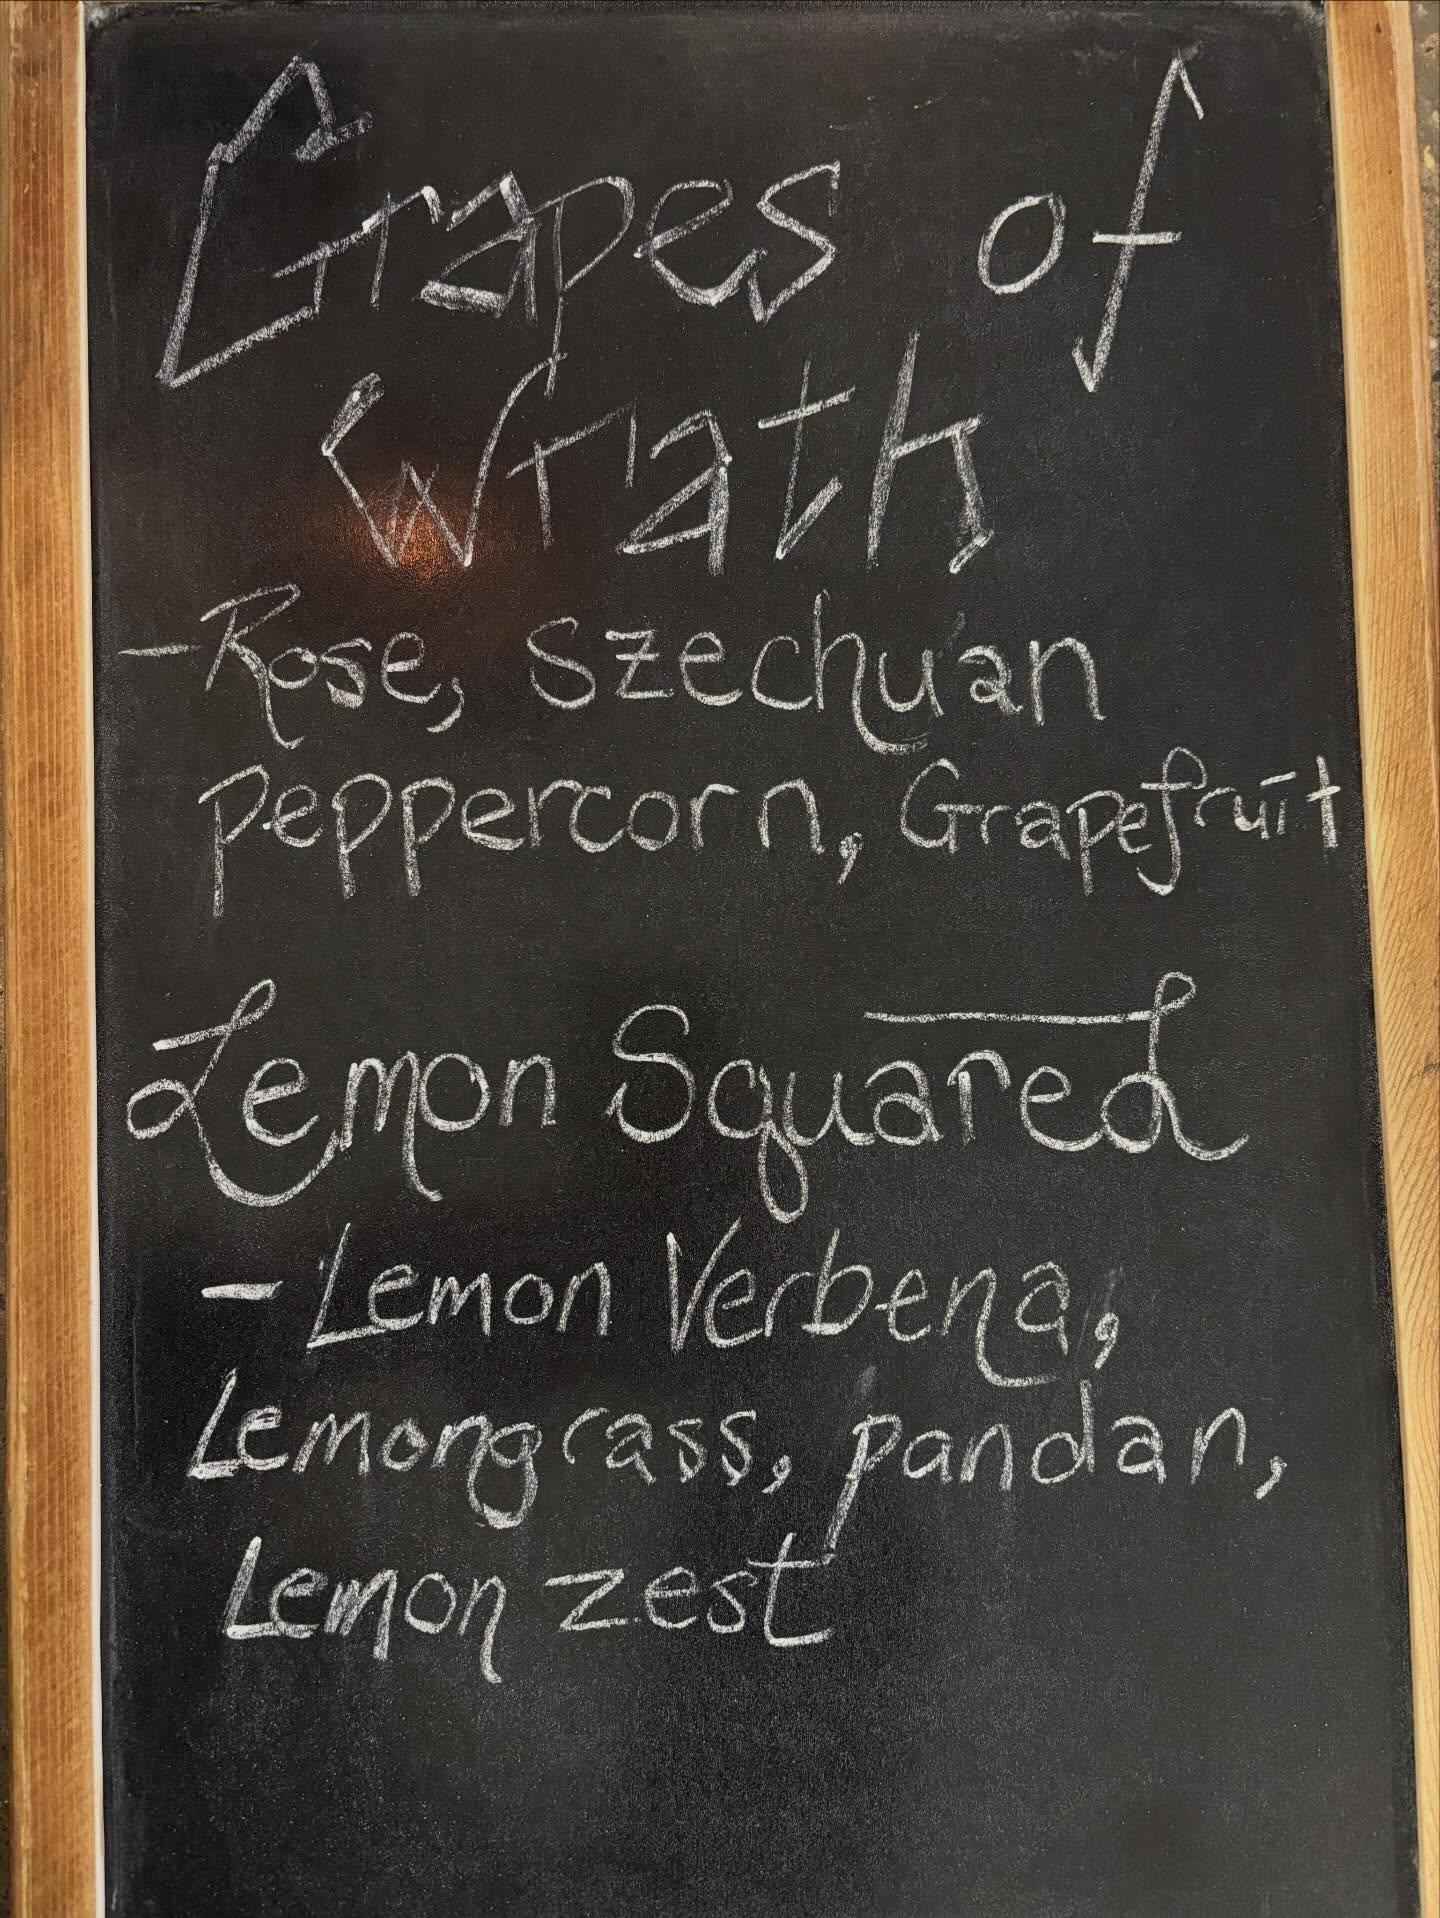 Grapes of
Wrath
- Rose, Szechuan
peppercorn, Grapefruit
Lemon Squared
- Lemon Verbena,
Lemongrass, pandan,
Lemon zest